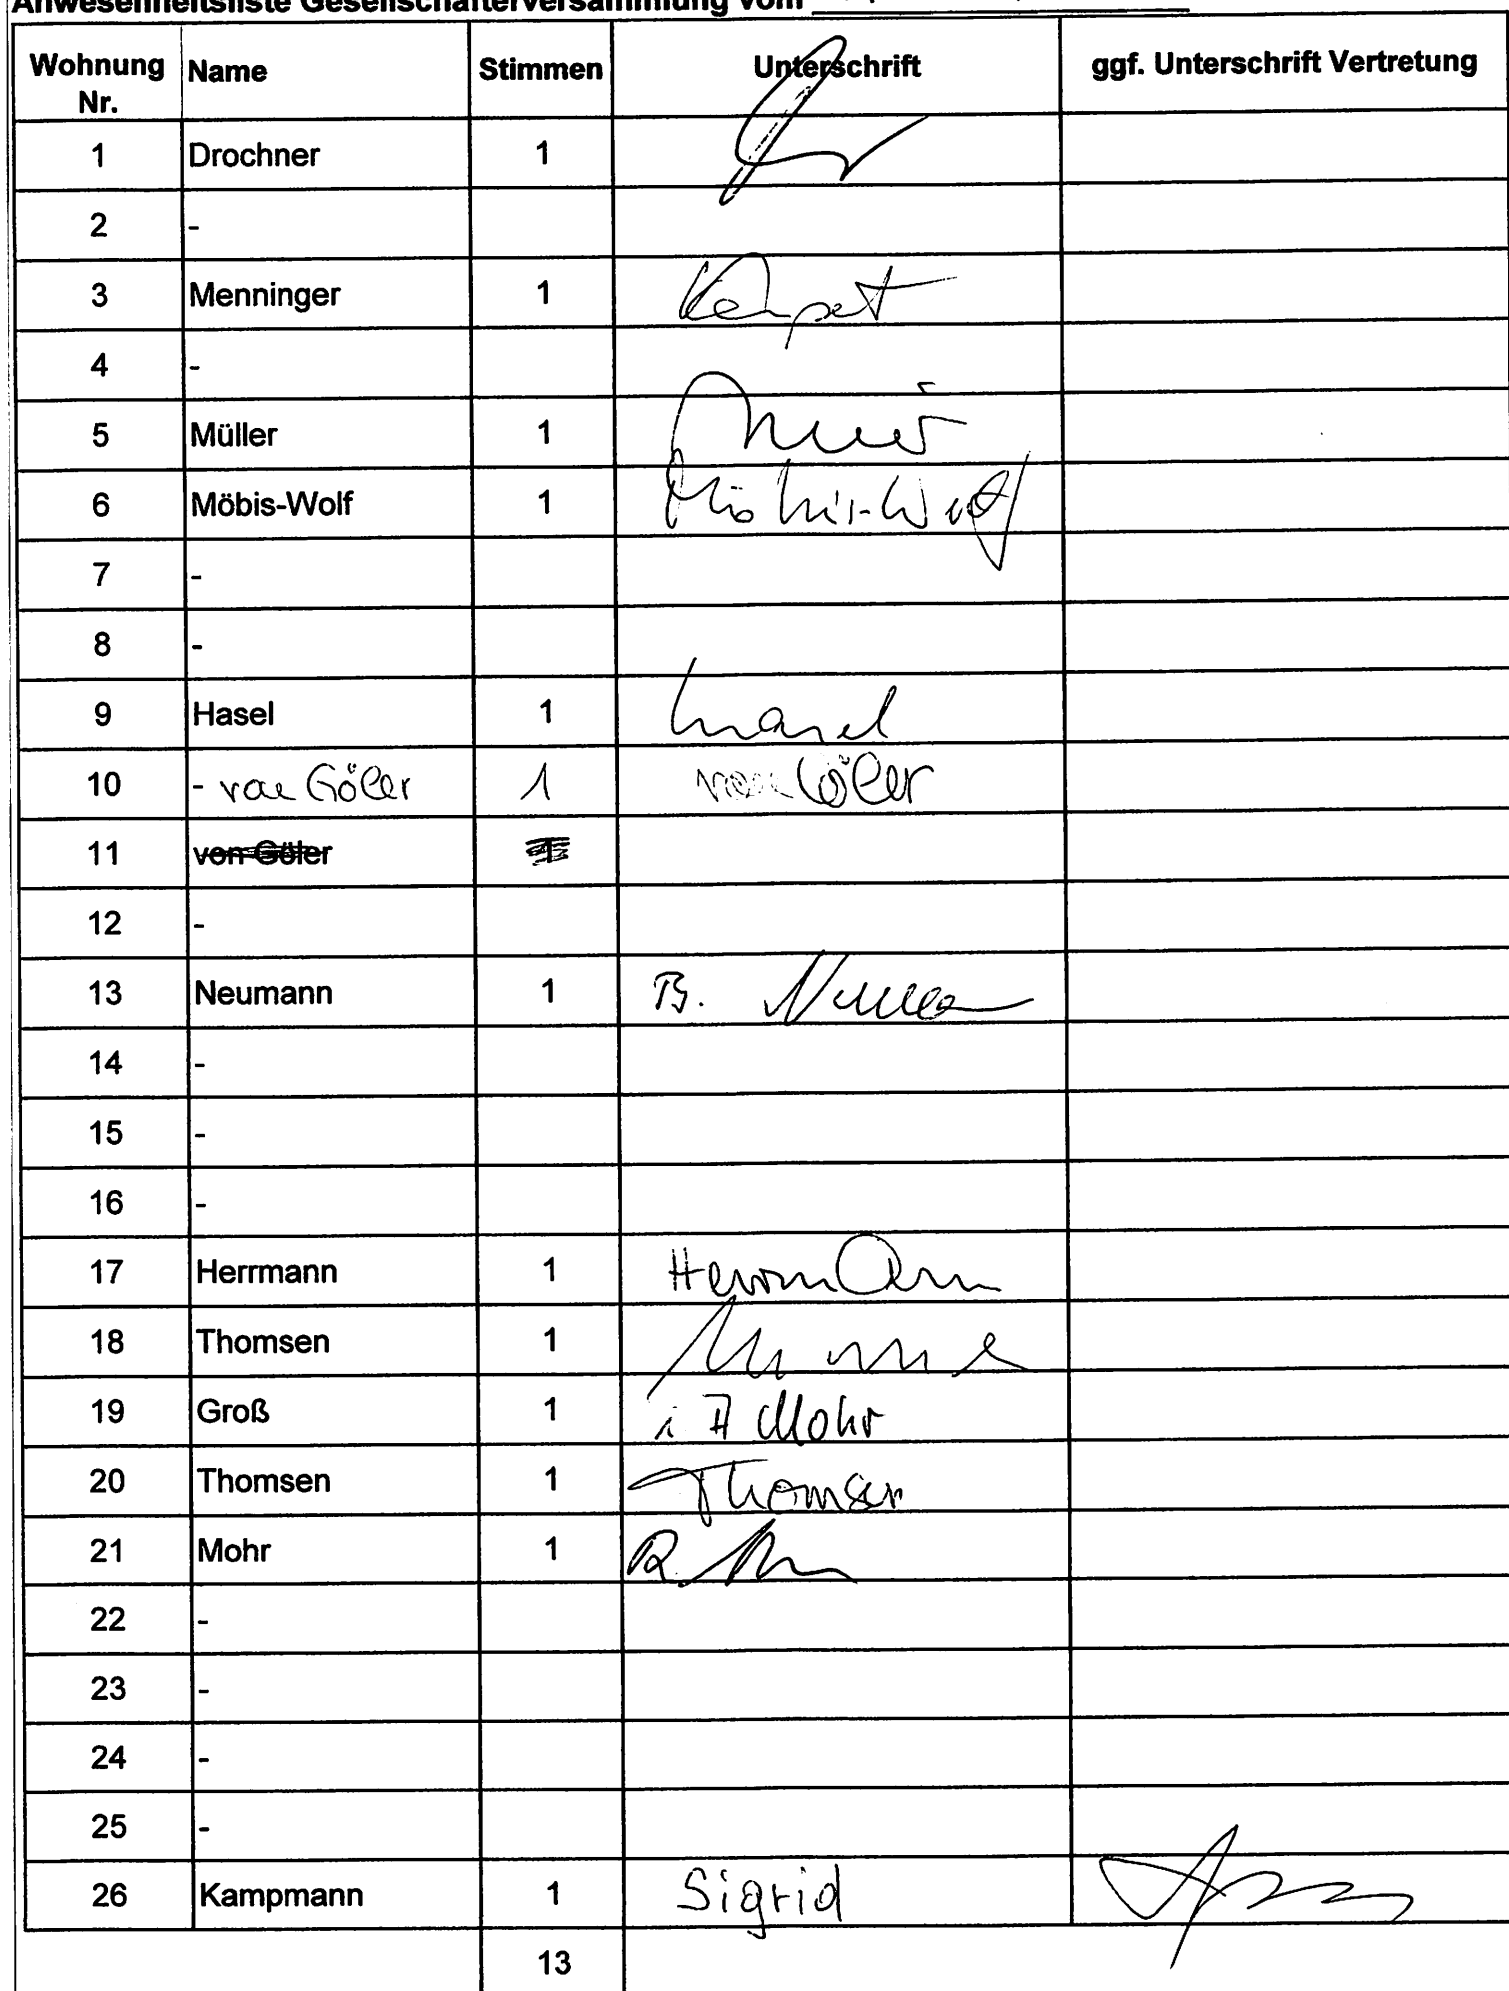 Anwesenheitsliste Gesellschafterversammlung vom
Wohnung Nr. Name Stimmen Unterschrift ggf. Unterschrift Vertretung
1 Drochner 1
2 -
3 Menninger 1
4 -
5 Müller 1
6 Möbis-Wolf 1 Möbis-Wolf
7 -
8 -
9 Hasel 1 Hasel
10 - von Göler 1 von Göler
11 von Göler 1
12 -
13 Neumann 1 B.
14 -
15 -
16 -
17 Herrmann 1 Herrmann
18 Thomsen 1
19 Groß 1 i A Mohr
20 Thomsen 1 Thomsen
21 Mohr 1 R.
22 -
23 -
24 -
25 -
26 Kampmann 1 Sigrid
13